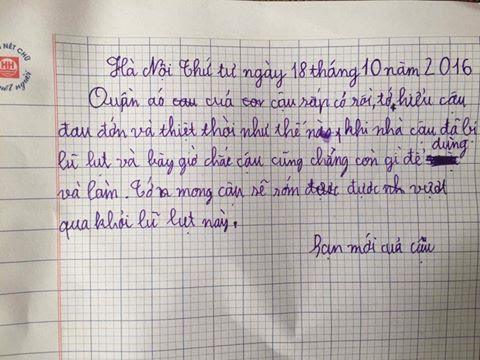 NÉT CHỮ
HH
NẾT NGƯỜI
Hà Nội Thứ tư ngày 18 tháng 10 năm 2016
Quần áo cau của cơr cậu sắp có rồi, tớ hiểu cậu
đau đớn và thiệt thòi như thế nào, khi nhà cậu đã bị
lũ lụt và bây giờ chắc cậu cũng chẳng còn gì để dùng
và làm. Tớ mong cậu sẽ sớm được được nh vượt
qua khỏi lữ lụt này.
Bạn mới của cậu